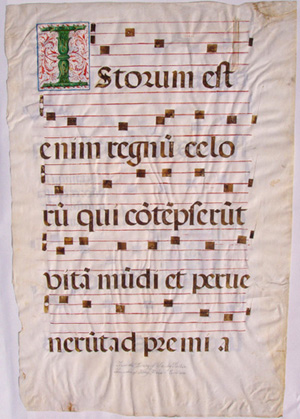 Istorum est
enim regnū celo
rū qui cōtēpserūt
vitā mūdi et perue
nerūt ad premi a